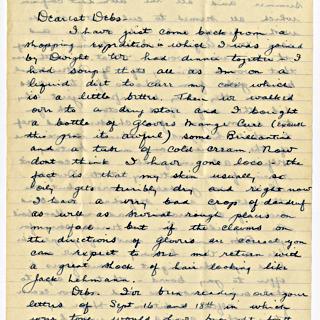 Dearest Debs
I have just come back from a
shopping expedition in which I was joined
by Dwight. We had dinner together - I
had soup thats all as I'm on a
liquid diet to carry my cold which
is a little better. Then we walked
over to a drug store and I bought
a bottle of Glovers Mange Cure (
it awful) some Brilliantine
and a tube of cold cream. Now
dont think I have gone loco - the
fact is that my skin usually so
oily gets terribly dry and right now
I have a very bad crop of dandruf
as well as several rough places on
my face - but if the claims on
the directions of Glovers are correct you
can expect to see me return with
a great shock of hair looking like
Jack Lehmann.
Debs. I've been reading over your
letters of Sept 16 and 18th in which